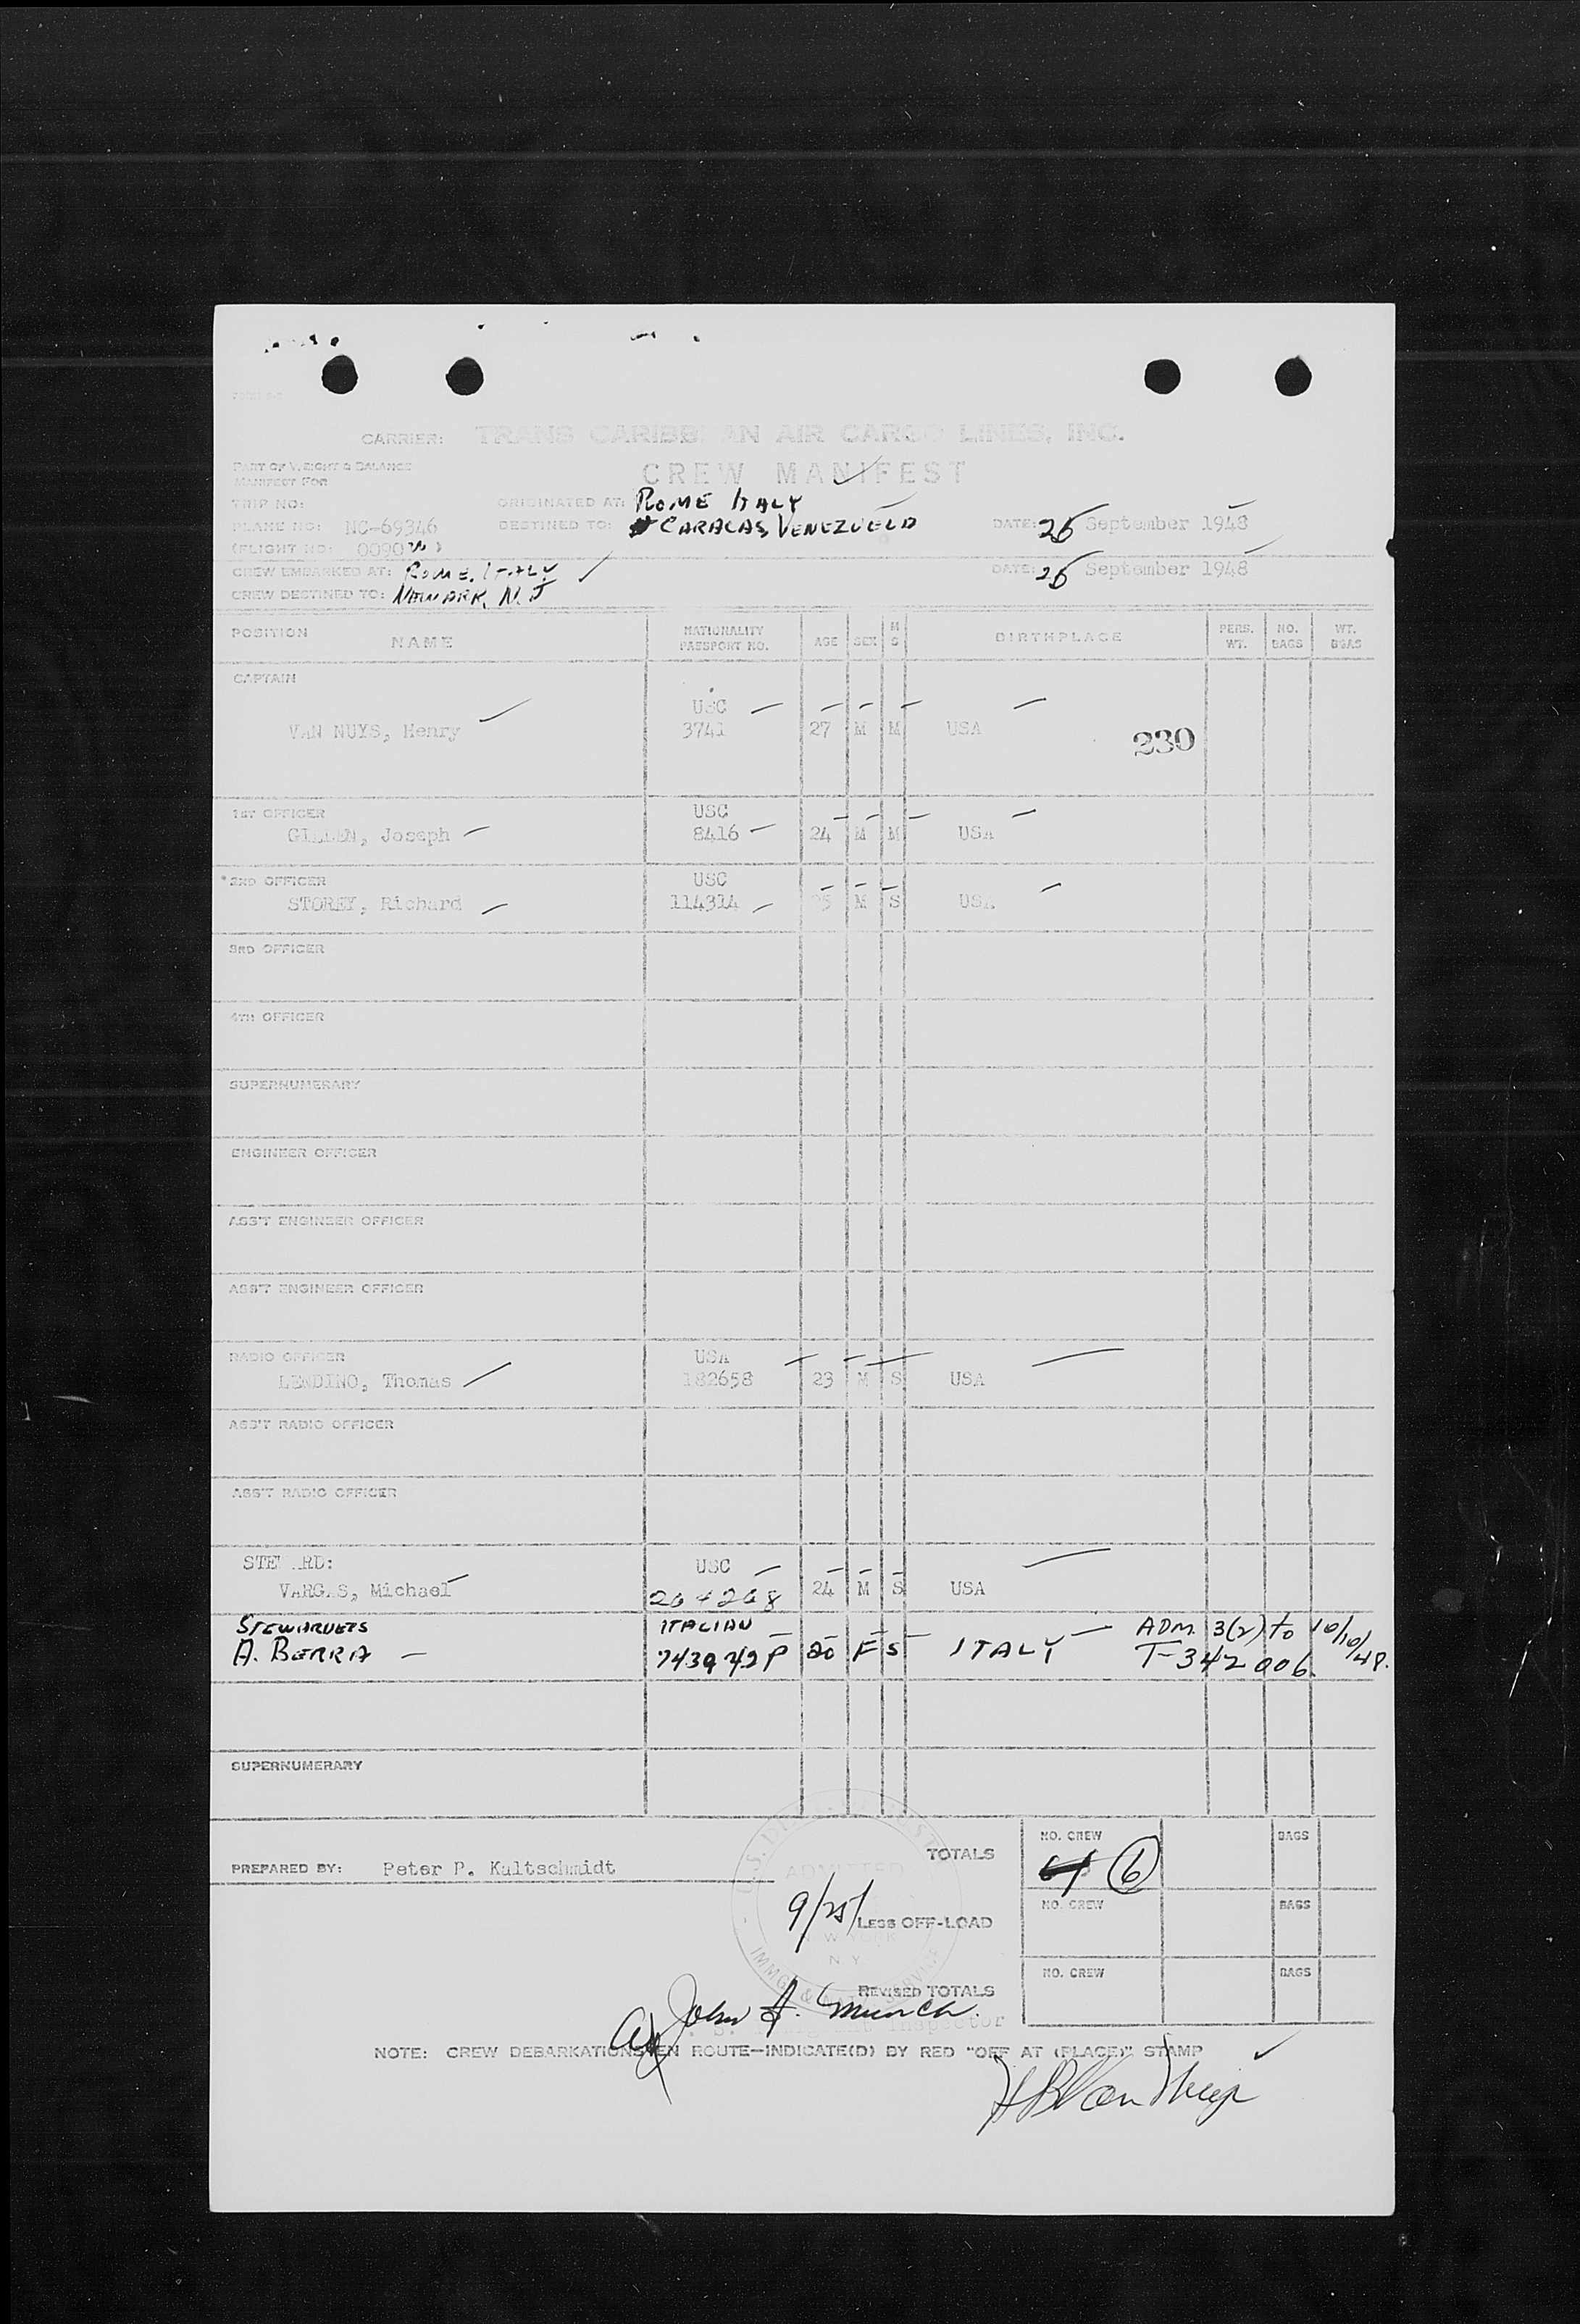 CARRIER: TRANS CARIBBEAN AIR CARGO LINES, INC.
PART OF WEIGHT & BALANCE
MANIFEST FOR
CREW MANIFEST
TRIP NO: ORIGINATED AT: ROME ITALY
PLANE NO: NC-69346 DESTINED TO: CARACAS, VENEZUELA DATE: 25 September 1948
(FLIGHT NO: 0090 )
CREW EMBARKED AT: ROME, ITALY DATE: 25 September 1948
CREW DESTINED TO: NEWARK, N.J
POSITION NAME NATIONALITY PASSPORT NO. AGE SEX M S BIRTHPLACE PERS. WT. NO. BAGS WT. BGAS
CAPTAIN
USC
VAN NUYS, Henry 3741 27 M M USA 230
1ST OFFICER USC
GILLEN, Joseph 8416 24 M M USA
*2ND OFFICER USC
STOREY, Richard 114314 25 M S USA
3RD OFFICER
4TH OFFICER
SUPERNUMERARY
ENGINEER OFFICER
ASS'T ENGINEER OFFICER
ASS'T ENGINEER OFFICER
RADIO OFFICER USA
LENDINO, Thomas 182658 23 M S USA
ASS'T RADIO OFFICER
ASS'T RADIO OFFICER
STE RD: USC
VARG.S, Michael 264268 24 M S USA
STEWARDESS ITALIAN ADM 3(2) to 10/10/48.
A. BERRA 743942P 20 F S ITALY T-342006.
SUPERNUMERARY
NO. CREW BAGS
PREPARED BY: Peter P. Kaltschmidt TOTALS 6
U.S. DEPT. OF JUSTICE
ADMITTED
9/25/ LESS OFF-LOAD NO. CREW BAGS
NEW YORK
N.Y.
IMMG. & NAT. SERVICE
REVISED TOTALS NO. CREW BAGS
John A. Munch
U. S. Immigrant Inspector
NOTE: CREW DEBARKATIONS EN ROUTE—INDICATE(D) BY RED "OFF AT (PLACE)" STAMP